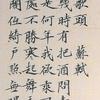 歌頭 蘇軾
時有把酒問
何年我欲乘
處不勝寒起舞
閣低綺戶照無眠